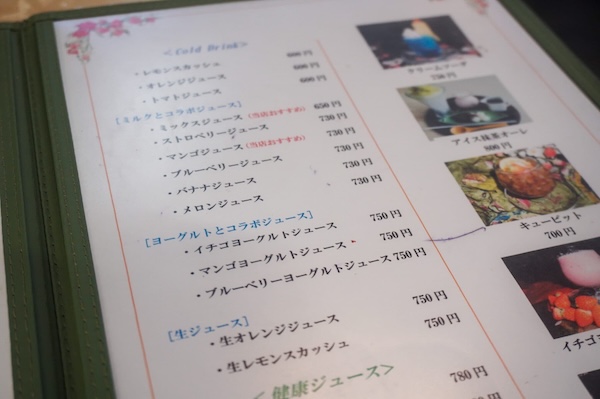 < Cold Drink>
・レモンスカッシュ 600円
・オレンジジュース 600円
・トマトジュース 600円
[ミルクとコラボジュース]
・ミックスジュース(当店おすすめ) 650円
・ストロベリージュース 730円
・マンゴジュース(当店おすすめ) 730円
・ブルーベリージュース 730円
・バナナジュース 730円
・メロンジュース 730円
[ヨーグルトとコラボジュース]
・イチゴヨーグルトジュース 750円
・マンゴヨーグルトジュース 750円
・ブルーベリーヨーグルトジュース 750円
[生ジュース]
・生オレンジジュース 750円
・生レモンスカッシュ 750円
< 健康ジュース>
780円
クリームソーダ
750円
アイス抹茶オーレ
800円
キューピット
700円
イチゴヨ